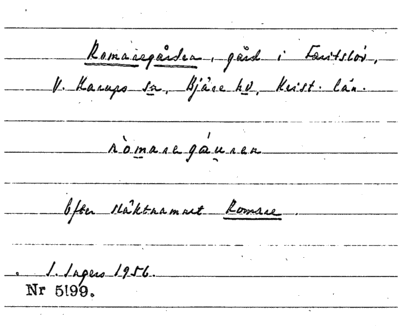 Romaregården, gård i Faritslöv,
V. Karups sn, Bjäre hd, Krist. län.
ròmaregá̱u̱ren
Efter släktnamnet Romare.
I. Ingers 1956.
Nr 5199.